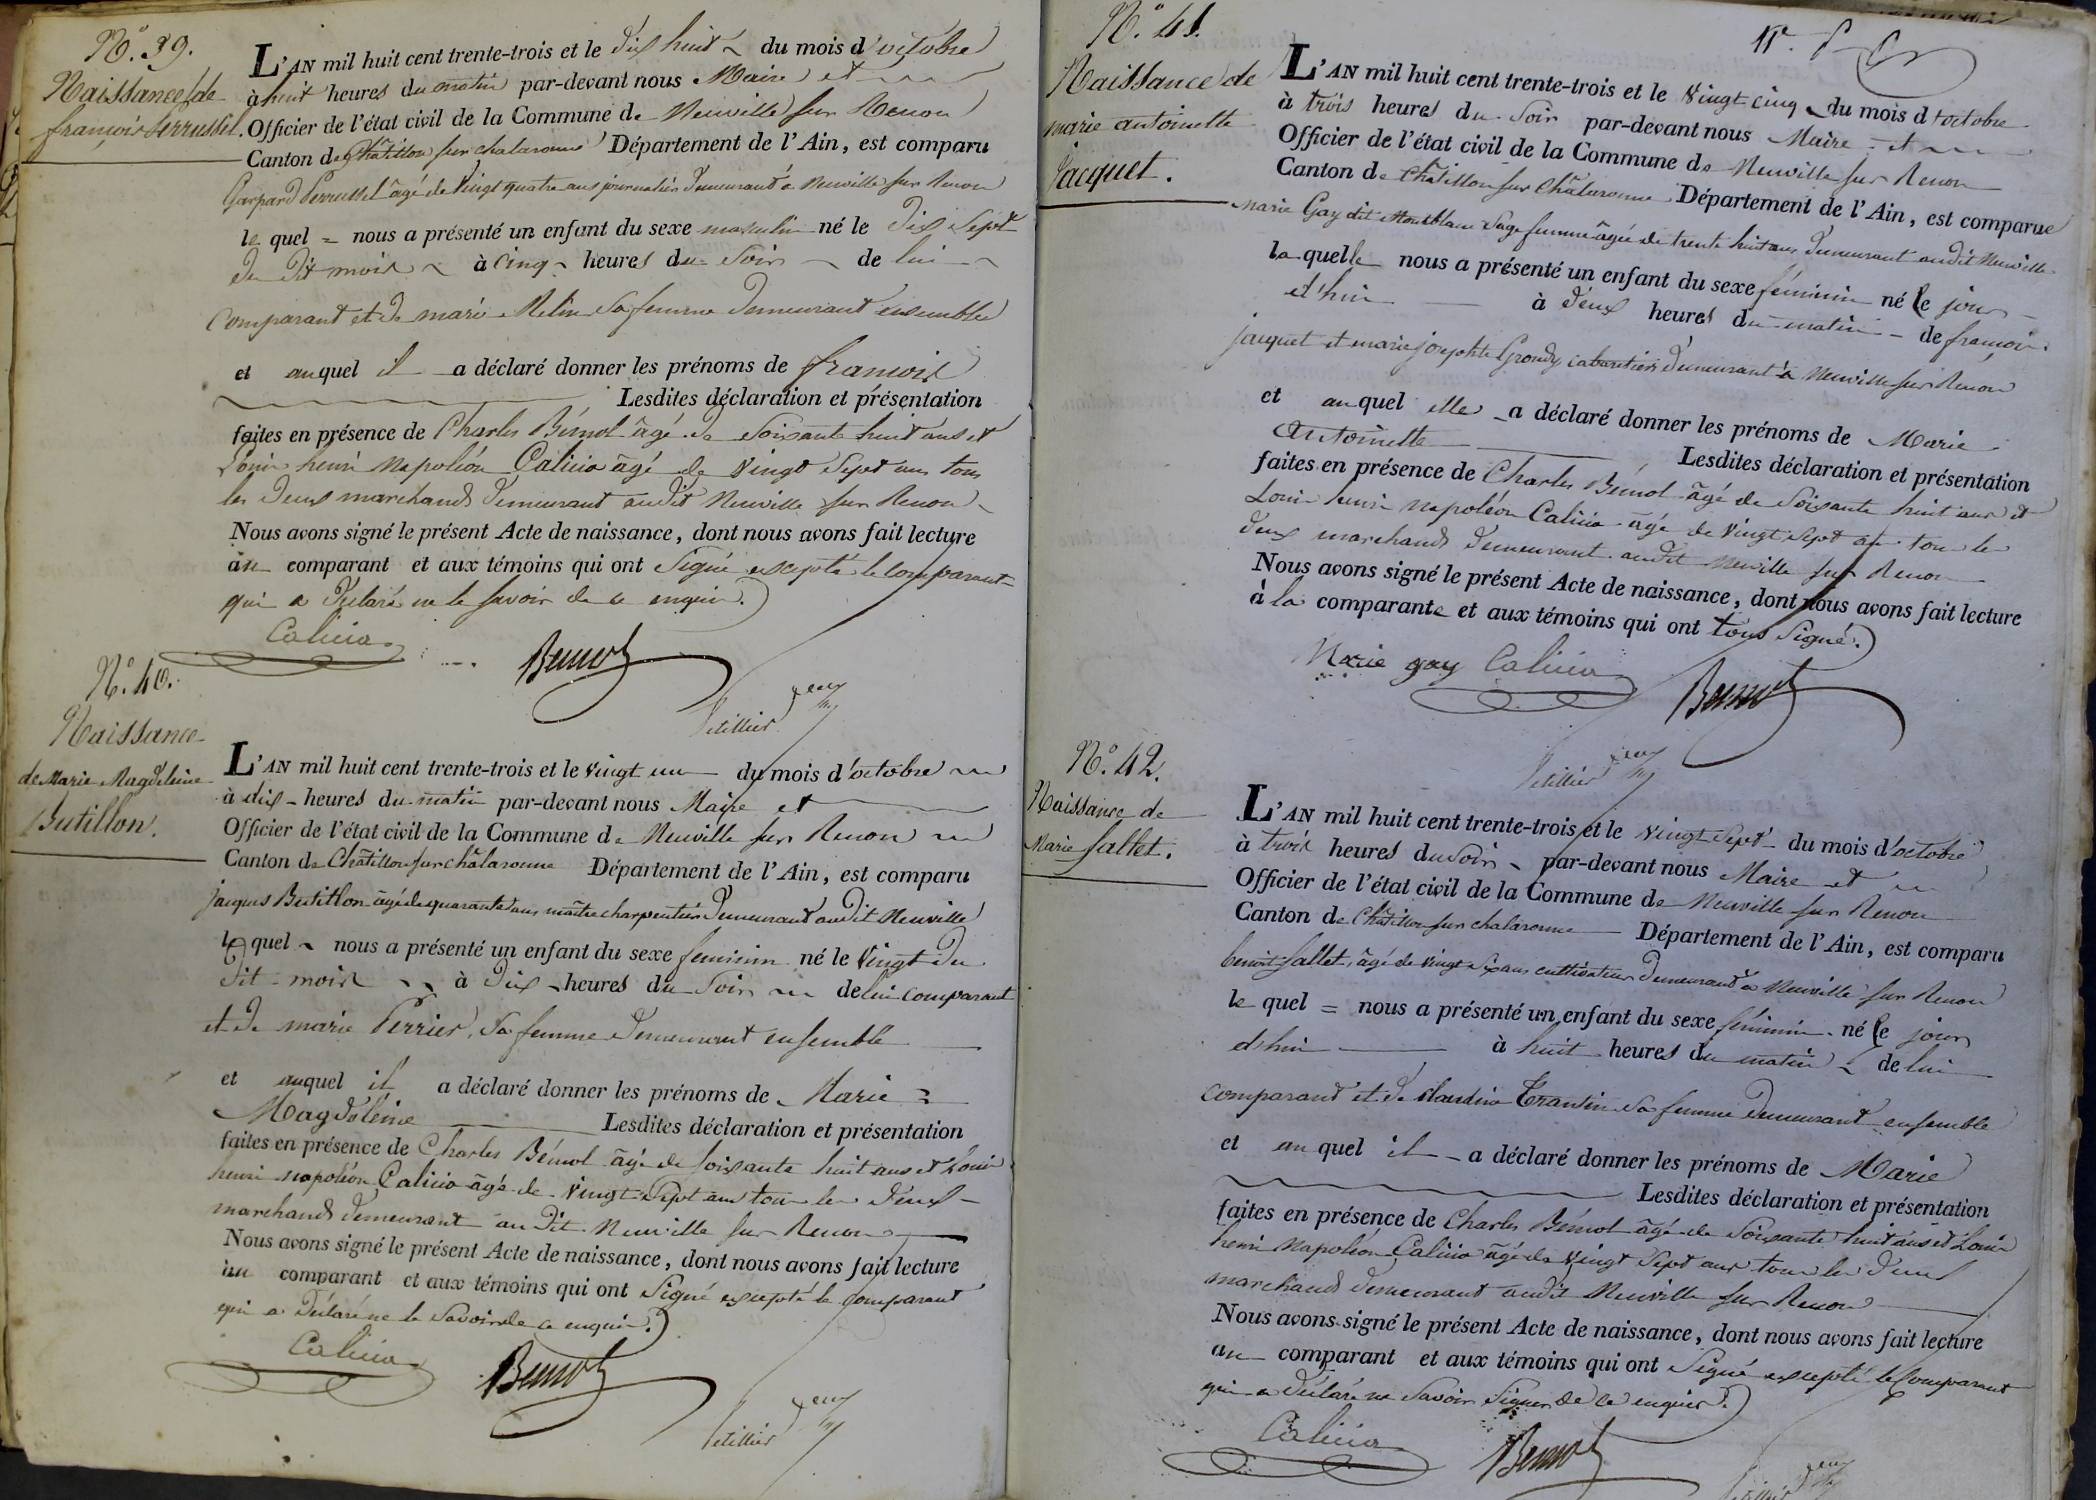 N.o 39.
Naissance de
françois Perrussel.
L'AN mil huit cent trente-trois et le dix huit du mois d'octobre
à huit heures du matin par-devant nous Maire et
Officier de l'état civil de la Commune de Neuville sur Renon
Canton de Châtillon sur chalaronne Département de l'Ain, est comparu
Gaspard Perrussel âgé de vingt quatre ans journalier demeurant à Neuville sur Renon
le quel = nous a présenté un enfant du sexe masculin né le dix sept
du dit mois à cinq heures du soir de lui
comparant et de marie Relin sa femme demeurant ensemble
et auquel il a déclaré donner les prénoms de françois
Lesdites déclaration et présentation
faites en présence de Charles Bémol âgé de soixante huit ans et
Louis henri Napoléon Calicia âgé de vingt sept ans tous
les deux marchands demeurant audit Neuville sur Renon
Nous avons signé le présent Acte de naissance, dont nous avons fait lecture
au comparant et aux témoins qui ont signé excepté le comparant
qui a déclaré ne le savoir de ce enquis.
Calicia
Bemol
N.o 40.
Naissance
de Marie Magdeleine
Butillon.
L'AN mil huit cent trente-trois et le vingt un du mois d'octobre
à dix heures du matin par-devant nous Maire et
Officier de l'état civil de la Commune de Neuville sur Renon
Canton de Châtillon sur châlaronne Département de l'Ain, est comparu
jacques Butillon âgé de quarante ans maître charpentier demeurant audit Neuville
le quel nous a présenté un enfant du sexe feminin né le vingt du
dit mois à dix heures du soir de lui comparant
et de marie Perrier, sa femme demeurant ensemble
et auquel il a déclaré donner les prénoms de Marie
Magdeleine Lesdites déclaration et présentation
faites en présence de Charles Bémol âgé de soixante huit ans et Louis
henri napoléon Calicia âgé de vingt sept ans tous les deux
marchands demeurant au dit Neuville sur Renon
Nous avons signé le présent Acte de naissance, dont nous avons fait lecture
au comparant et aux témoins qui ont signé excepté le comparant
qui a déclaré ne le savoir de ce enquis.
Calicia
Bemol
N.o 41.
Naissance de
marie antoinette
Jacquet.
L'AN mil huit cent trente-trois et le vingt cinq du mois d'octobre
à trois heures du soir par-devant nous Maire et
Officier de l'état civil de la Commune de Neuville sur Renon
Canton de Châtillon sur Châlaronne Département de l'Ain, est comparue
marie Gay dit Montblanc sage femme âgée de trente huit ans demeurant audit Neuville
la quelle nous a présenté un enfant du sexe féminin né le jour
d'hui à deux heures du matin de françois
jacquet et marie josephte Grandy cabaretiers demeurant à Neuville sur Renon
et auquel elle a déclaré donner les prénoms de Marie
Antoinette Lesdites déclaration et présentation
faites en présence de Charles Bémol âgé de soixante huit ans et
Louis henri napoléon Calicia âgé de vingt sept ans tous les
deux marchands demeurant audit Neuville sur Renon
Nous avons signé le présent Acte de naissance, dont nous avons fait lecture
à la comparante et aux témoins qui ont tous signé.
Marie gay Calicia
Bemol
N.o 42.
Naissance de
Marie Sallet.
L'AN mil huit cent trente-trois et le vingt sept du mois d'octobre
à trois heures du soir par-devant nous Maire et
Officier de l'état civil de la Commune de Neuville sur Renon
Canton de Châtillon sur chalaronne Département de l'Ain, est comparu
benoit Sallet, âgé de vingt six ans cultivateur demeurant à Neuville sur Renon
le quel = nous a présenté un enfant du sexe féminin né le jour
d'hui à huit heures du matin de lui
comparant et de Claudine Trantin sa femme demeurant ensemble
et auquel il a déclaré donner les prénoms de Marie
Lesdites déclaration et présentation
faites en présence de Charles Bémol âgé de soixante huit ans et Louis
henri Napoléon Calicia âgé de vingt sept ans tous les deux
marchands demeurant audit Neuville sur Renon
Nous avons signé le présent Acte de naissance, dont nous avons fait lecture
au comparant et aux témoins qui ont signé excepté le Comparant
qui a déclaré ne savoir signer de ce enquis.
Calicia
Bemol